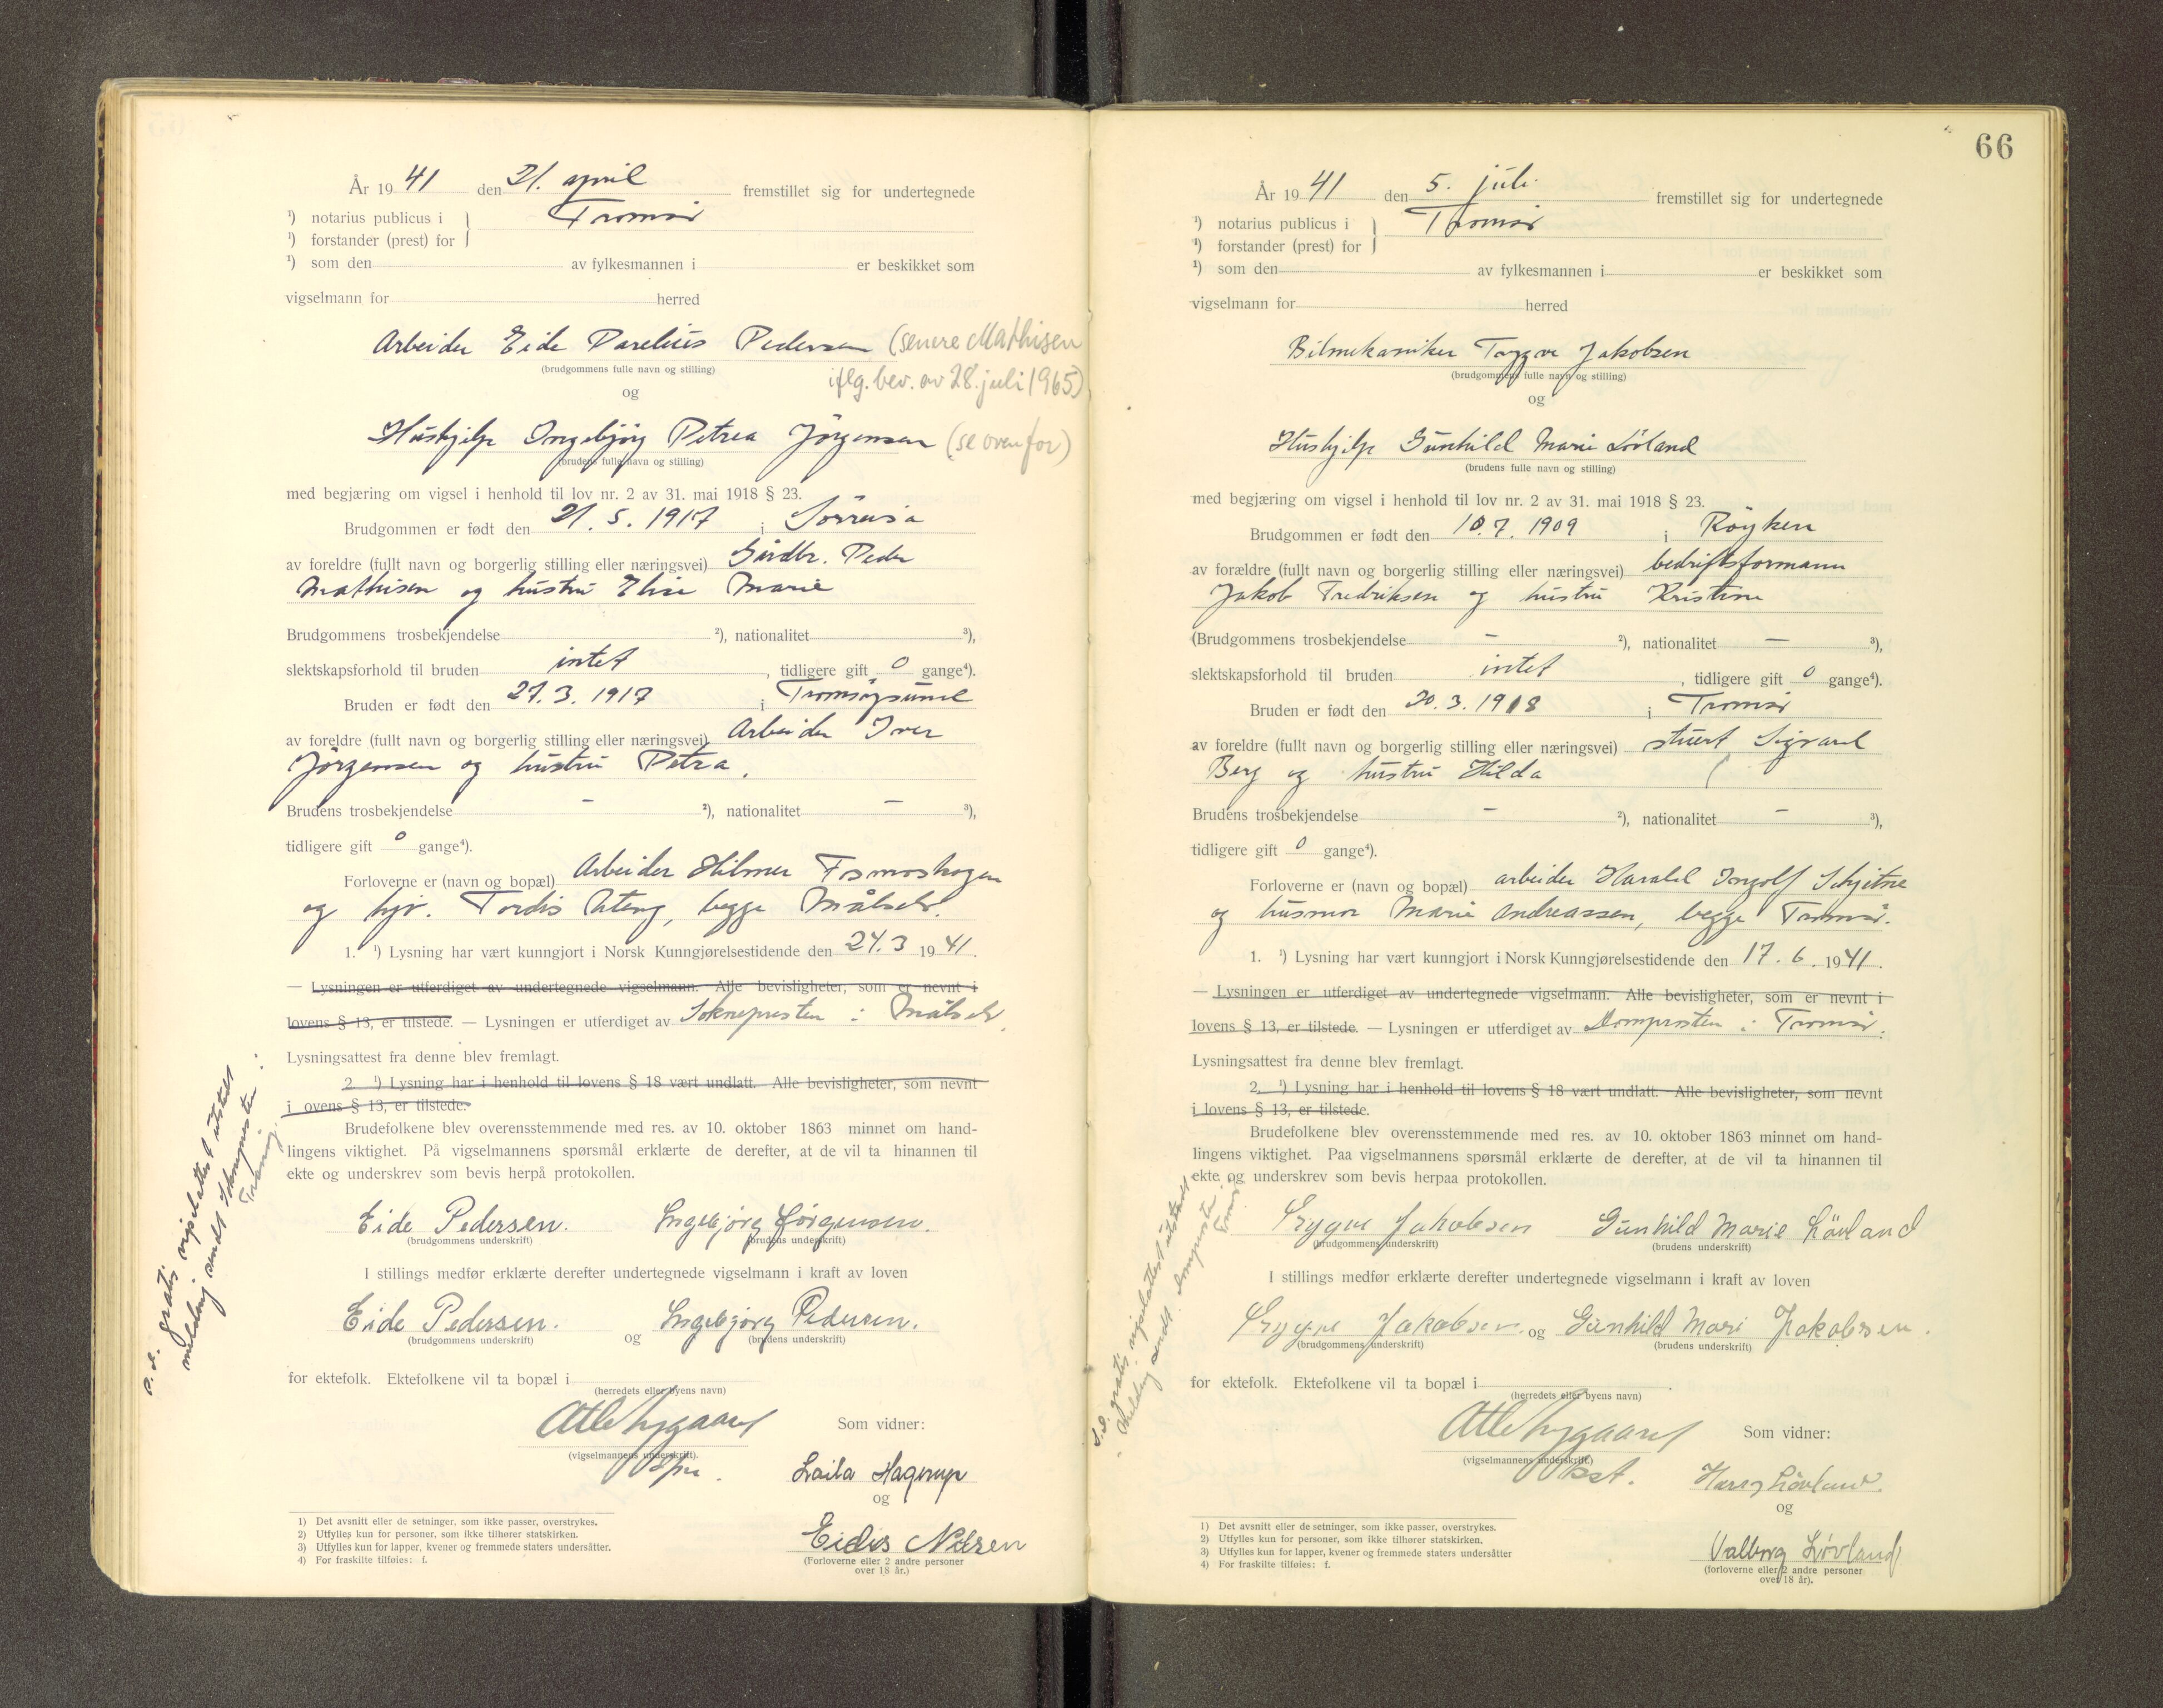 År 19 41 den 21. april fremstillet sig for undertegnede
¹) notarius publicus i } Tromsö
¹) forstander (prest) for
¹) som den av fylkesmannen i er beskikket som
vigselmann for herred
Arbeider Eide Parelius Pedersen (senere Mathisen
(brudgommens fulle navn og stilling)
iflg. bev. av 28. juli 1965)
og
Hushjelp Ingebjörg Petrea Jörgensen (se ovenfor)
(brudens fulle navn og stilling)
med begjæring om vigsel i henhold til lov nr. 2 av 31. mai 1918 § 23.
Brudgommen er født den 21. 5. 1917 i Sörreisa
av foreldre (fullt navn og borgerlig stilling eller næringsvei) Gårdbr. Peder
Mathisen og hustru Elise Marie
Brudgommens trosbekjendelse ²), nationalitet ³),
slektskapsforhold til bruden intet , tidligere gift 0 gange⁴).
Bruden er født den 27. 3. 1917 i Tromsöysund
av foreldre (fullt navn og borgerlig stilling eller næringsvei) Arbeider Iver
Jörgensen og hustru Petra.
Brudens trosbekjendelse – ²), nationalitet – ³),
tidligere gift 0 gange⁴).
Forloverne er (navn og bopæl) Arbeider Hilmer Fosmoskogen
og hjv. Tordis Uteng, begge Målselv.
1. ¹) Lysning har vært kunngjort i Norsk Kunngjørelsestidende den 24. 3 19 41.
— Lysningen er utferdiget av undertegnede vigselmann. Alle bevisligheter, som er nevnt i
lovens § 13, er tilstede. — Lysningen er utferdiget av Sokneprosten i Målselv.
Lysningsattest fra denne blev fremlagt.
2. ¹) Lysning har i henhold til lovens § 18 vært undlatt. Alle bevisligheter, som nevnt
i ovens § 13, er tilstede.
Brudefolkene blev overensstemmende med res. av 10. oktober 1863 minnet om hand-
lingens viktighet. På vigselmannens spørsmål erklærte de derefter, at de vil ta hinannen til
ekte og underskrev som bevis herpå protokollen.
Eide Pedersen. Ingebjørg Jørgensen.
(brudgommens underskrift) (brudens underskrift)
I stillings medfør erklærte derefter undertegnede vigselmann i kraft av loven
Eide Pedersen. og Ingebjørg Pedersen.
(brudgommens underskrift) (brudens underskrift)
for ektefolk. Ektefolkene vil ta bopæl i
(herredets eller byens navn)
Atle Nygaard Som vidner:
(vigselmannens underskrift).
Laila Hagerup
og
Eidis Nilsen
(Forloverne eller 2 andre personer
over 18 år.)
1) Det avsnitt eller de setninger, som ikke passer, overstrykes.
2) Utfylles kun for personer, som ikke tilhører statskirken.
3) Utfylles kun for lapper, kvener og fremmede staters undersåtter.
4) For fraskilte tilføies: f.
gratis vigselattest utstedt
melding sendt Sokneprosten i
66
År 19 41 den 5. juli fremstillet sig for undertegnede
¹) notarius publicus i } Tromsö
¹) forstander (prest) for
¹) som den av fylkesmannen i er beskikket som
vigselmann for herred
Bilmekaniker Trygve Jakobsen
(brudgommens fulle navn og stilling)
og
Hushjelp Gunhild Marie Lövland
(brudens fulle navn og stilling)
med begjæring om vigsel i henhold til lov nr. 2 av 31. mai 1918 § 23.
Brudgommen er født den 10. 7. 1909 i Röyken
av forældre (fullt navn og borgerlig stilling eller næringsvei) bedriftsformann
Jakob Fredriksen og hustru Kristine
(Brudgommens trosbekjendelse – ²), nationalitet – ³),
slektskapsforhold til bruden intet , tidligere gift 0 gange⁴).
Bruden er født den 20. 3. 1918 i Tromsö
av foreldre (fullt navn og borgerlig stilling eller næringsvei) stuert Sigvard
Berg og hustru Hilda
Brudens trosbekjendelse – ²), nationalitet – ³),
tidligere gift 0 gange⁴).
Forloverne er (navn og bopæl) arbeider Harald Ingolf
og husmor Marie Andreassen, begge Tromsö.
1. ¹) Lysning har vært kunngjort i Norsk Kunngjørelsestidende den 17. 6. 19 41.
— Lysningen er utferdiget av undertegnede vigselmann. Alle bevisligheter, som er nevnt i
lovens § 13, er tilstede. — Lysningen er utferdiget av Domprosten i Tromsö.
Lysningsattest fra denne blev fremlagt.
2. ¹) Lysning har i henhold til lovens § 18 vært undlatt. Alle bevisligheter, som nevnt
i lovens § 13, er tilstede.
Brudefolkene blev overensstemmende med res. av 10. oktober 1863 minnet om hand-
lingens viktighet. Paa vigselmannens spørsmål erklærte de derefter, at de vil ta hinannen til
ekte og underskrev som bevis herpaa protokollen.
Trygve Jakobsen Gunhild Marie Lövland
(brudgommens underskrift) (brudens underskrift)
I stillings medfør erklærte derefter undertegnede vigselmann i kraft av loven
Trygve Jakobsen og Gunhild Mari Jakobsen.
(brudgommens underskrift) (brudens underskrift)
for ektefolk. Ektefolkene vil ta bopæl i
(herredets eller byens navn)
Atle Nygaard Som vidner:
(vigselmannens underskrift.)
Lövland.
og
Valborg Lövland
(forloverne eller 2 andre personer
over 18 år).
1) Det avsnitt eller de setninger, som ikke passer, overstrykes.
2) Utfylles kun for personer, som ikke tilhører statskirken.
3) Utfylles kun for lapper, kvener og fremmede staters undersåtter
4) For fraskilte tilføies: f.
gratis vigselattest utstedt
Melding sendt Domprosten i
Tromsö